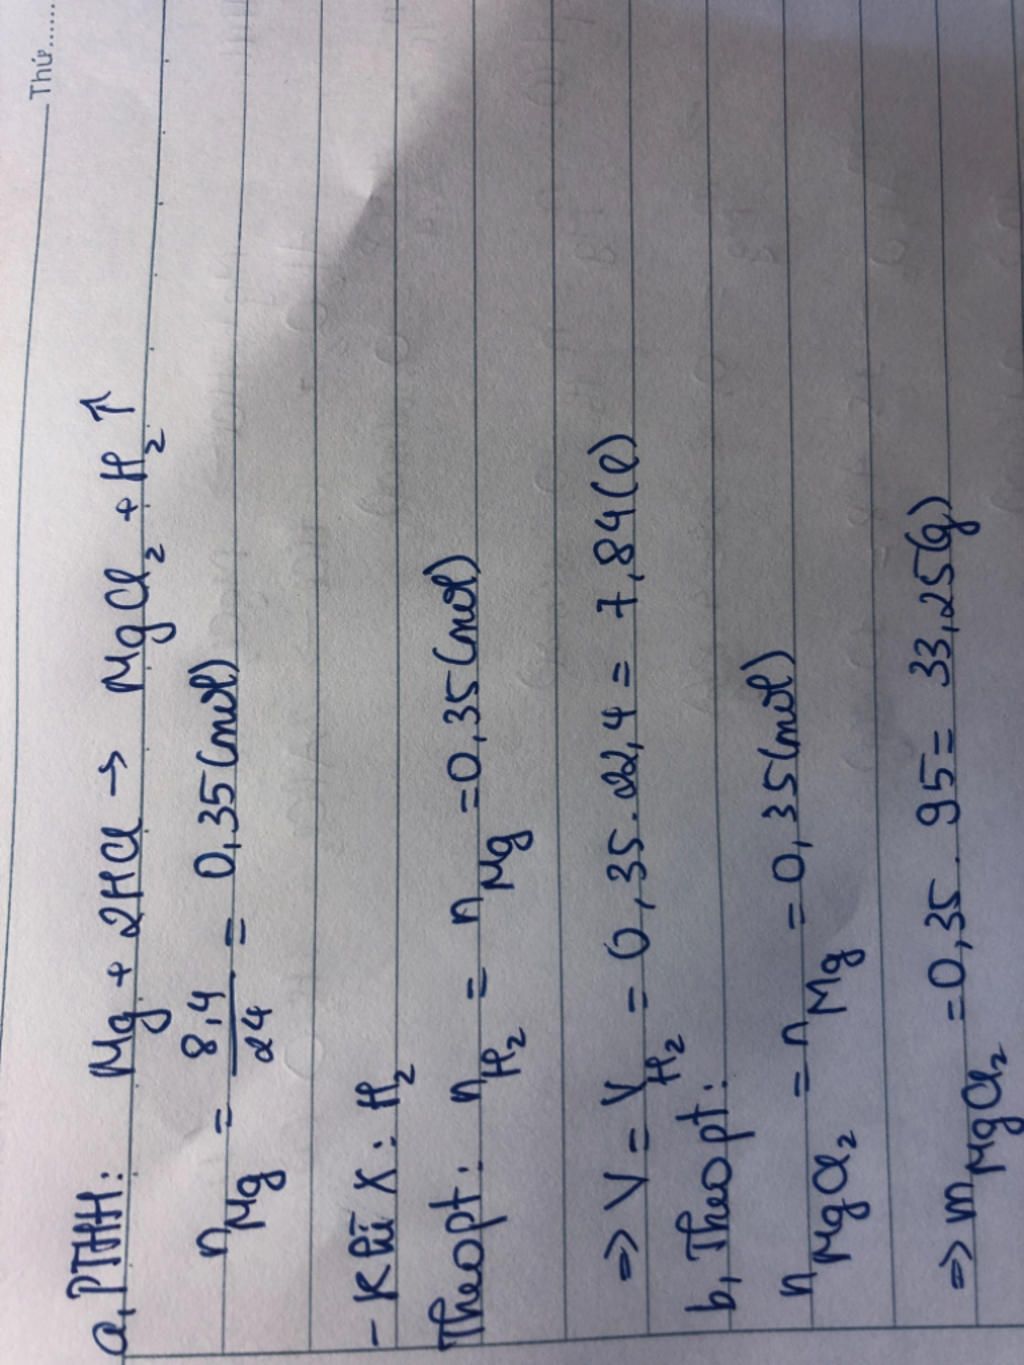 Thứ......
a, PTHH: Mg + 2HCl → MgCl₂ + H₂ ↑
n_Mg = 8,4/24 = 0,35 (mol)
- Khí X: H₂
Theo pt: n_H₂ = n_Mg = 0,35 (mol)
=> V = V_H₂ = 0,35 . 22,4 = 7,84 (l)
b, Theo pt:
n_MgCl₂ = n_Mg = 0,35 (mol)
=> m_MgCl₂ = 0,35 . 95 = 33,25 (g)